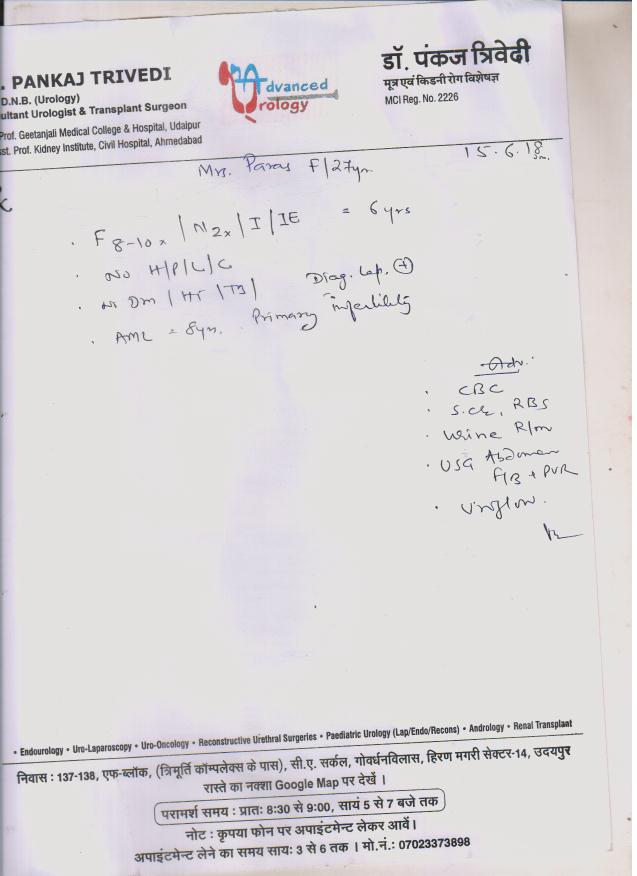 . PANKAJ TRIVEDI
D.N.B. (Urology)
ultant Urologist & Transplant Surgeon
Prof. Geetanjali Medical College & Hospital, Udaipur
st. Prof. Kidney Institute, Civil Hospital, Ahmedabad
Advanced
Urology
डॉ. पंकज त्रिवेदी
मूत्र एवं किडनी रोग विशेषज्ञ
MCI Reg. No. 2226
Mrs. Paras F/27yr
15.6.18
· F8-10x / N2x / I / IE = 6 yrs
· No H/P/L/C
· No DM / HT / TB /
Diag. Lap. +
· AML = 8yr. Primary infertility
Adv.
· CBC
· S.Cr, RBS
· Urine R/m
· USG Abdomen
F/B + PVR
· Uroflow.
• Endourology • Uro-Laparoscopy • Uro-Oncology • Reconstructive Urethral Surgeries • Paediatric Urology (Lap/Endo/Recons) • Andrology • Renal Transplant
निवास : 137-138, एफ-ब्लॉक, (त्रिमूर्ति कॉम्पलेक्स के पास), सी.ए. सर्कल, गोवर्धनविलास, हिरण मगरी सेक्टर-14, उदयपुर
रास्ते का नक्शा Google Map पर देखें ।
परामर्श समय : प्रातः 8:30 से 9:00, सायं 5 से 7 बजे तक
नोट : कृपया फोन पर अपाइंटमेन्ट लेकर आवें।
अपाइंटमेन्ट लेने का समय सायः 3 से 6 तक । मो.नं.: 07023373898